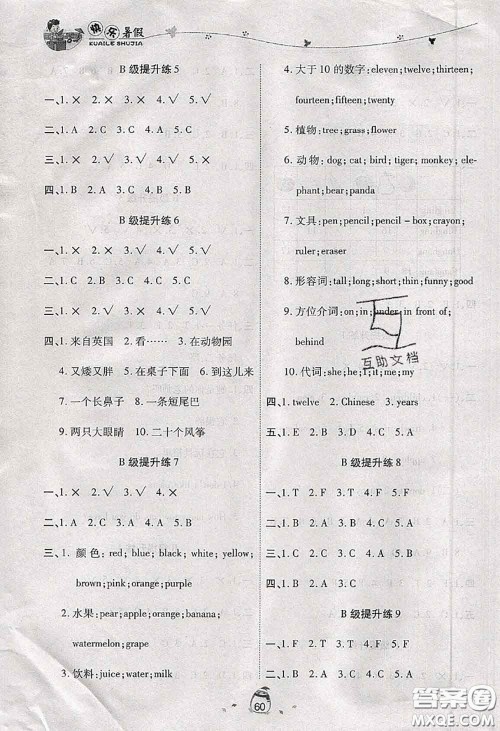 快乐暑假
KUAILE SHUJIA
B 级提升练 5
一、1. × 2. × 3. √ 4. √ 5. √
二、1. C 2. B 3. C 4. A 5. C
三、1. × 2. √ 3. × 4. √ 5. ×
四、1. B 2. A 3. C 4. A 5. B
B 级提升练 6
一、1. × 2. × 3. √ 4. × 5. √
二、1. C 2. B 3. C 4. A 5. C
三、1. × 2. √ 3. × 4. √ 5. √
四、1. 来自英国 2. 看…… 3. 在动物园
4. 又矮又胖 5. 在桌子下面 6. 到这儿来
7. 一个长鼻子 8. 一条短尾巴
9. 两只大眼睛 10. 二十个风筝
B 级提升练 7
一、1. × 2. √ 3. √ 4. ×
二、1. A 2. C 3. A 4. A 5. B
三、1. 颜色: red; blue; black; white; yellow;
brown; pink; orange; purple
2. 水果: pear; apple; orange; banana;
watermelon; grape
3. 饮料: juice; water; milk
4. 大于 10 的数字: eleven; twelve; thirteen;
fourteen; fifteen; twenty
5. 植物: tree; grass; flower
6. 动物: dog; cat; bird; tiger; monkey; ele-
phant; bear; panda
7. 文具: pen; pencil; pencil-box; crayon;
ruler; eraser
8. 形容词: tall; long; short; thin; funny; good
9. 方位介词: on; in; under; in front of;
behind
10. 代词: she; he; I; it; me; my
四、1. twelve 2. Chinese 3. years
五、1. B 2. C 3. A 4. C 5. A
B 级提升练 8
一、1. T 2. F 3. T 4. F 5. F
二、1. A 2. C 3. C 4. A 5. B
三、1. T 2. F 3. T 4. T 5. F
四、1. B 2. A 3. B 4. A 5. C
B 级提升练 9
一、1. F 2. F 3. T 4. F 5. T
二、1. C 2. A 3. A 4. B 5. C
60
互助文档
答案圈
MXQE.COM